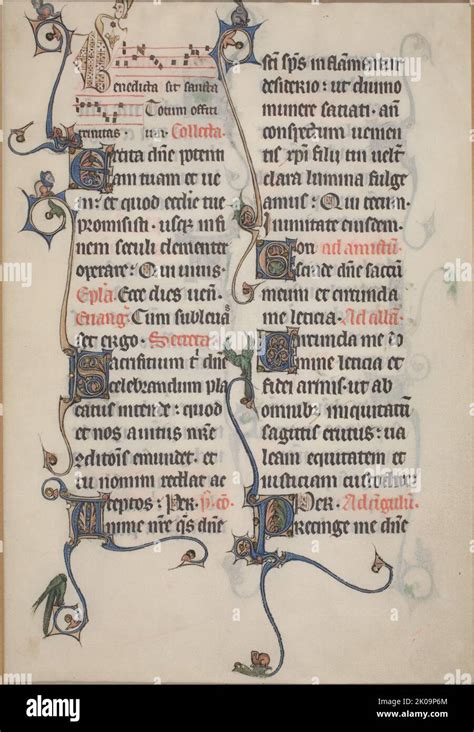 Benedicta sit sancta
Totum offitiū
trinitas ut s̄. Collecta.
Excita dn̄e potenti
am tuam et ue
ni: et quod ecclie tue
promisisti. usq; in fi
nem seculi clementer
operare: Qui uiuis.
Epl̄a. Ecce dies ueniū.
Euang. Cum subleuas
set ergo. Secreta.
Sacrifitium t̄ dn̄e
celebrandum pla
catus intende: quod
et nos a uitiis nr̄e
9ditionis emundet. et
tuo nomini reddat ac
ceptos: Per. p̄. cō.
Anime nr̄e q̄s dn̄e
sc̄i sp̄s inflamentur
desiderio: ut diuino
munere satiati. an̄
conspectum uenien
tis xp̄i filij tui uelut
clara lumina fulge
amus: Qui tecum.
in unitate eiusdem.
ad amictū.
dn̄e sacrū
meum et circunda
me leticia. Ad albā.
Circunda me do
mine leticia et
fidei armis. ut ab
omnib; iniquitatū
sagittis erutus: ua
leam equitatem et
iusticiam custodire:
Per. Ad cigulū.
Precinge me dn̄e
alamy
alamy
Image ID: 2K09P6M
www.alamy.com